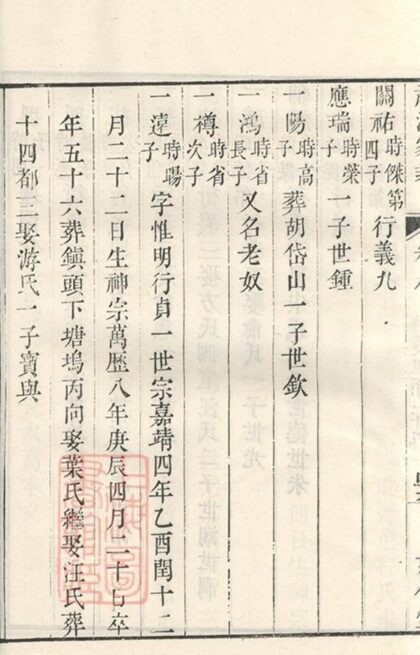 關祐時傑第四子行義九
應瑞時榮子一子世鍾
一陽時高子葬胡岱山一子世欽
一鴻時省長子又名老奴
一禪時省次子
一遠時暘子字惟明行貞一世宗嘉靖四年乙酉閏十二
月二十二日生神宗萬歷八年庚辰四月二十七卒
年五十六葬鎮頭下塘塢丙向娶葉氏繼娶汪氏葬
十四都三娶游氏一子寶與